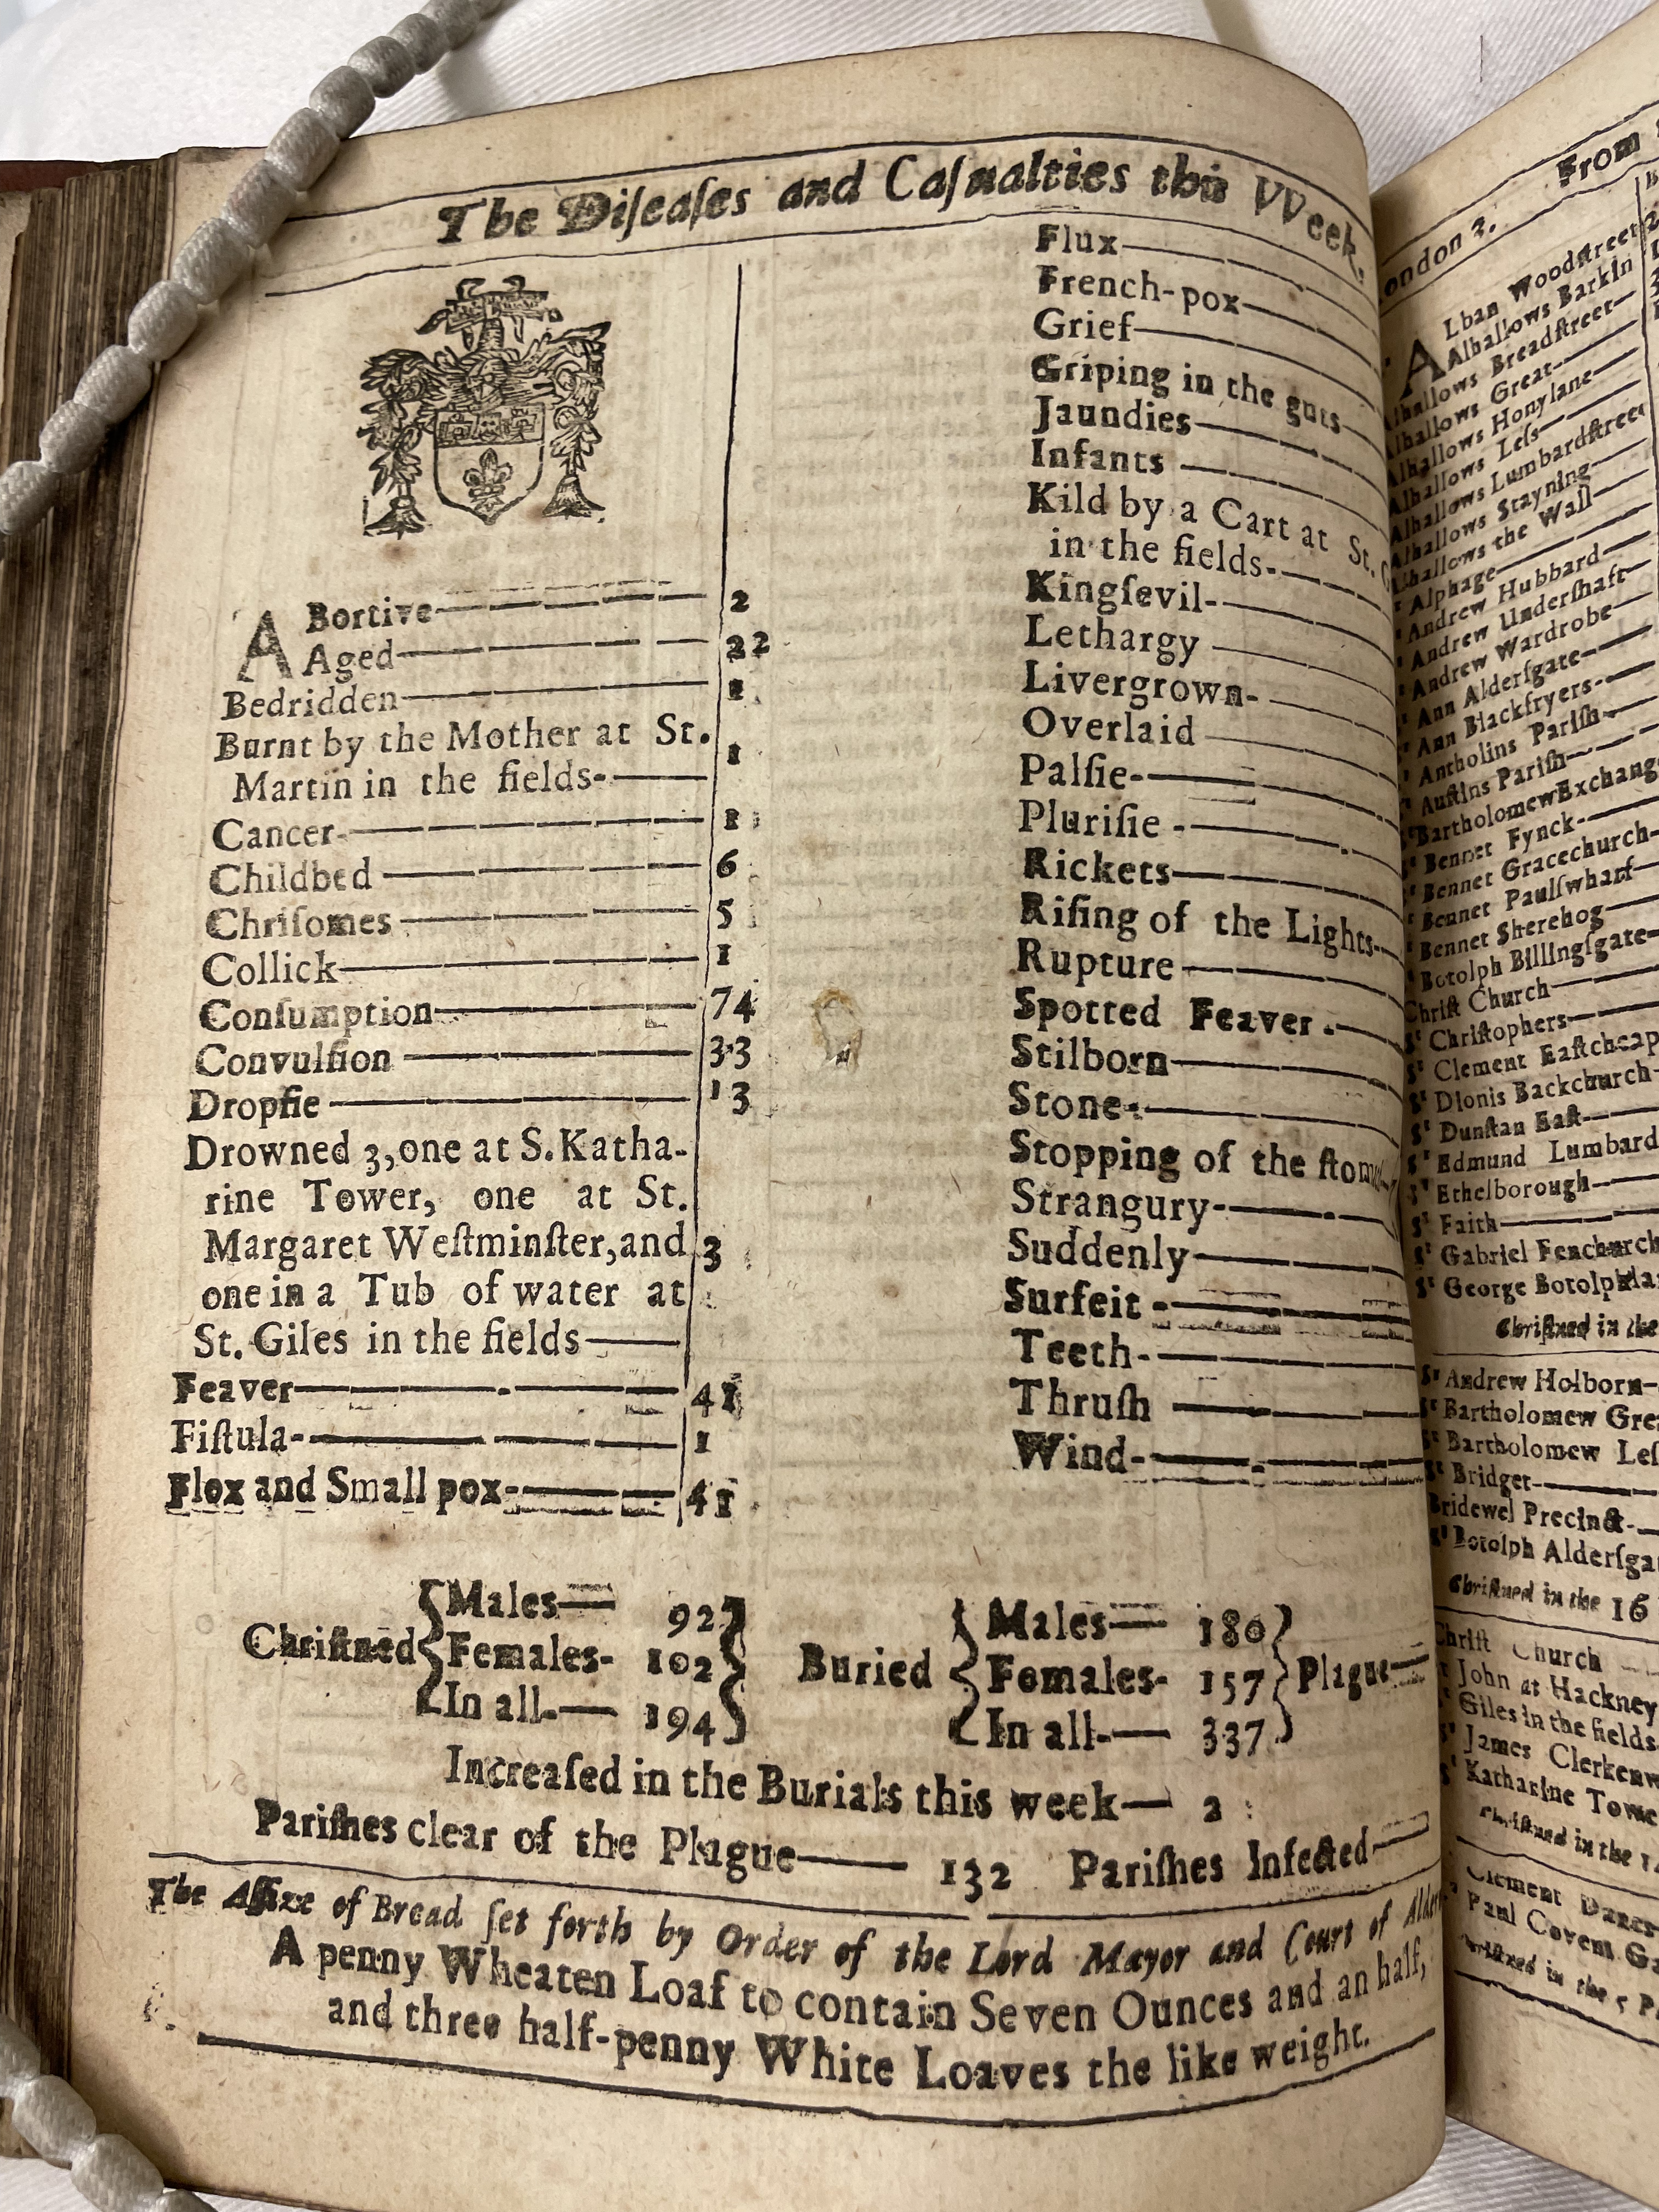 The Diſeaſes and Caſualties this VVeek.
ABortive 2
Aged 22
Bedridden 1
Burnt by the Mother at St.
Martin in the fields- 1
Cancer- 1
Childbed 6
Chriſomes 5
Collick 1
Conſumption 74
Convulſion 33
Dropſie 13
Drowned 3, one at S. Katha-
rine Tower, one at St.
Margaret Weſtminſter, and 3
one in a Tub of water at
St. Giles in the fields
Feaver 41
Fiſtula- 1
Flox and Small pox- 41
Flux
French-pox
Grief
Griping in the guts
Jaundies
Infants
Kild by a Cart at St.
in the fields-
Kingſevil-
Lethargy
Livergrown-
Overlaid
Palſie-
Pluriſie -
Rickets
Riſing of the Lights-
Rupture
Spotted Feaver
Stilborn
Stone
Stopping of the ſtom
Strangury-
Suddenly
Surfeit -
Teeth-
Thruſh
Wind-
Chriſtned Males 92
Females- 102
In all- 194
Buried Males 180
Females- 157
In all- 337
Plague
Increaſed in the Burials this week 2
Pariſhes clear of the Plague 132 Pariſhes Infected
The Aſſize of Bread ſet forth by Order of the Lord Mayor and Court of Alder
A penny Wheaten Loaf to contain Seven Ounces and an half,
and three half-penny White Loaves the like weight.
From
ondon 2.
ALban Woodſtreet
Alhallows Barkin
lhallows Breadſtreet
lhallows Great
Alhallows Honylane
Alhallows Leſs
Alhallows Lumbardſtreet
Alhallows Stayning
Alhallows the Wall
Alphage
Andrew Hubbard
Andrew Underſhaft
Andrew Wardrobe
Ann Alderſgate
Ann Blackfryers-
Antholins Pariſh
Auſtins Pariſh
Bartholomew Exchang
Bennet Fynck-
Bennet Gracechurch-
Bennet Paulſwharf
Bennet Sherehog
Botolph Billingſgate-
Chriſt Church
St Chriſtophers
St Clement Eaſtcheap
St Dionis Backchurch
St Dunſtan Eaſt
St Edmund Lumbard
St Ethelborough
St Faith
St Gabriel Fenchurch
St George Botolphla
Chriſtned in the
St Andrew Holborn-
St Bartholomew Gre
St Bartholomew Leſ
St Bridget
Bridewel Precinct-
St Botolph Alderſga
Chriſtned in the 16
Chriſt Church
John at Hackney
Giles in the fields
St James Clerkenw
St Katharine Towe
Chriſtned in the
Clement Danes
Paul Covent Ga
in the 5 P